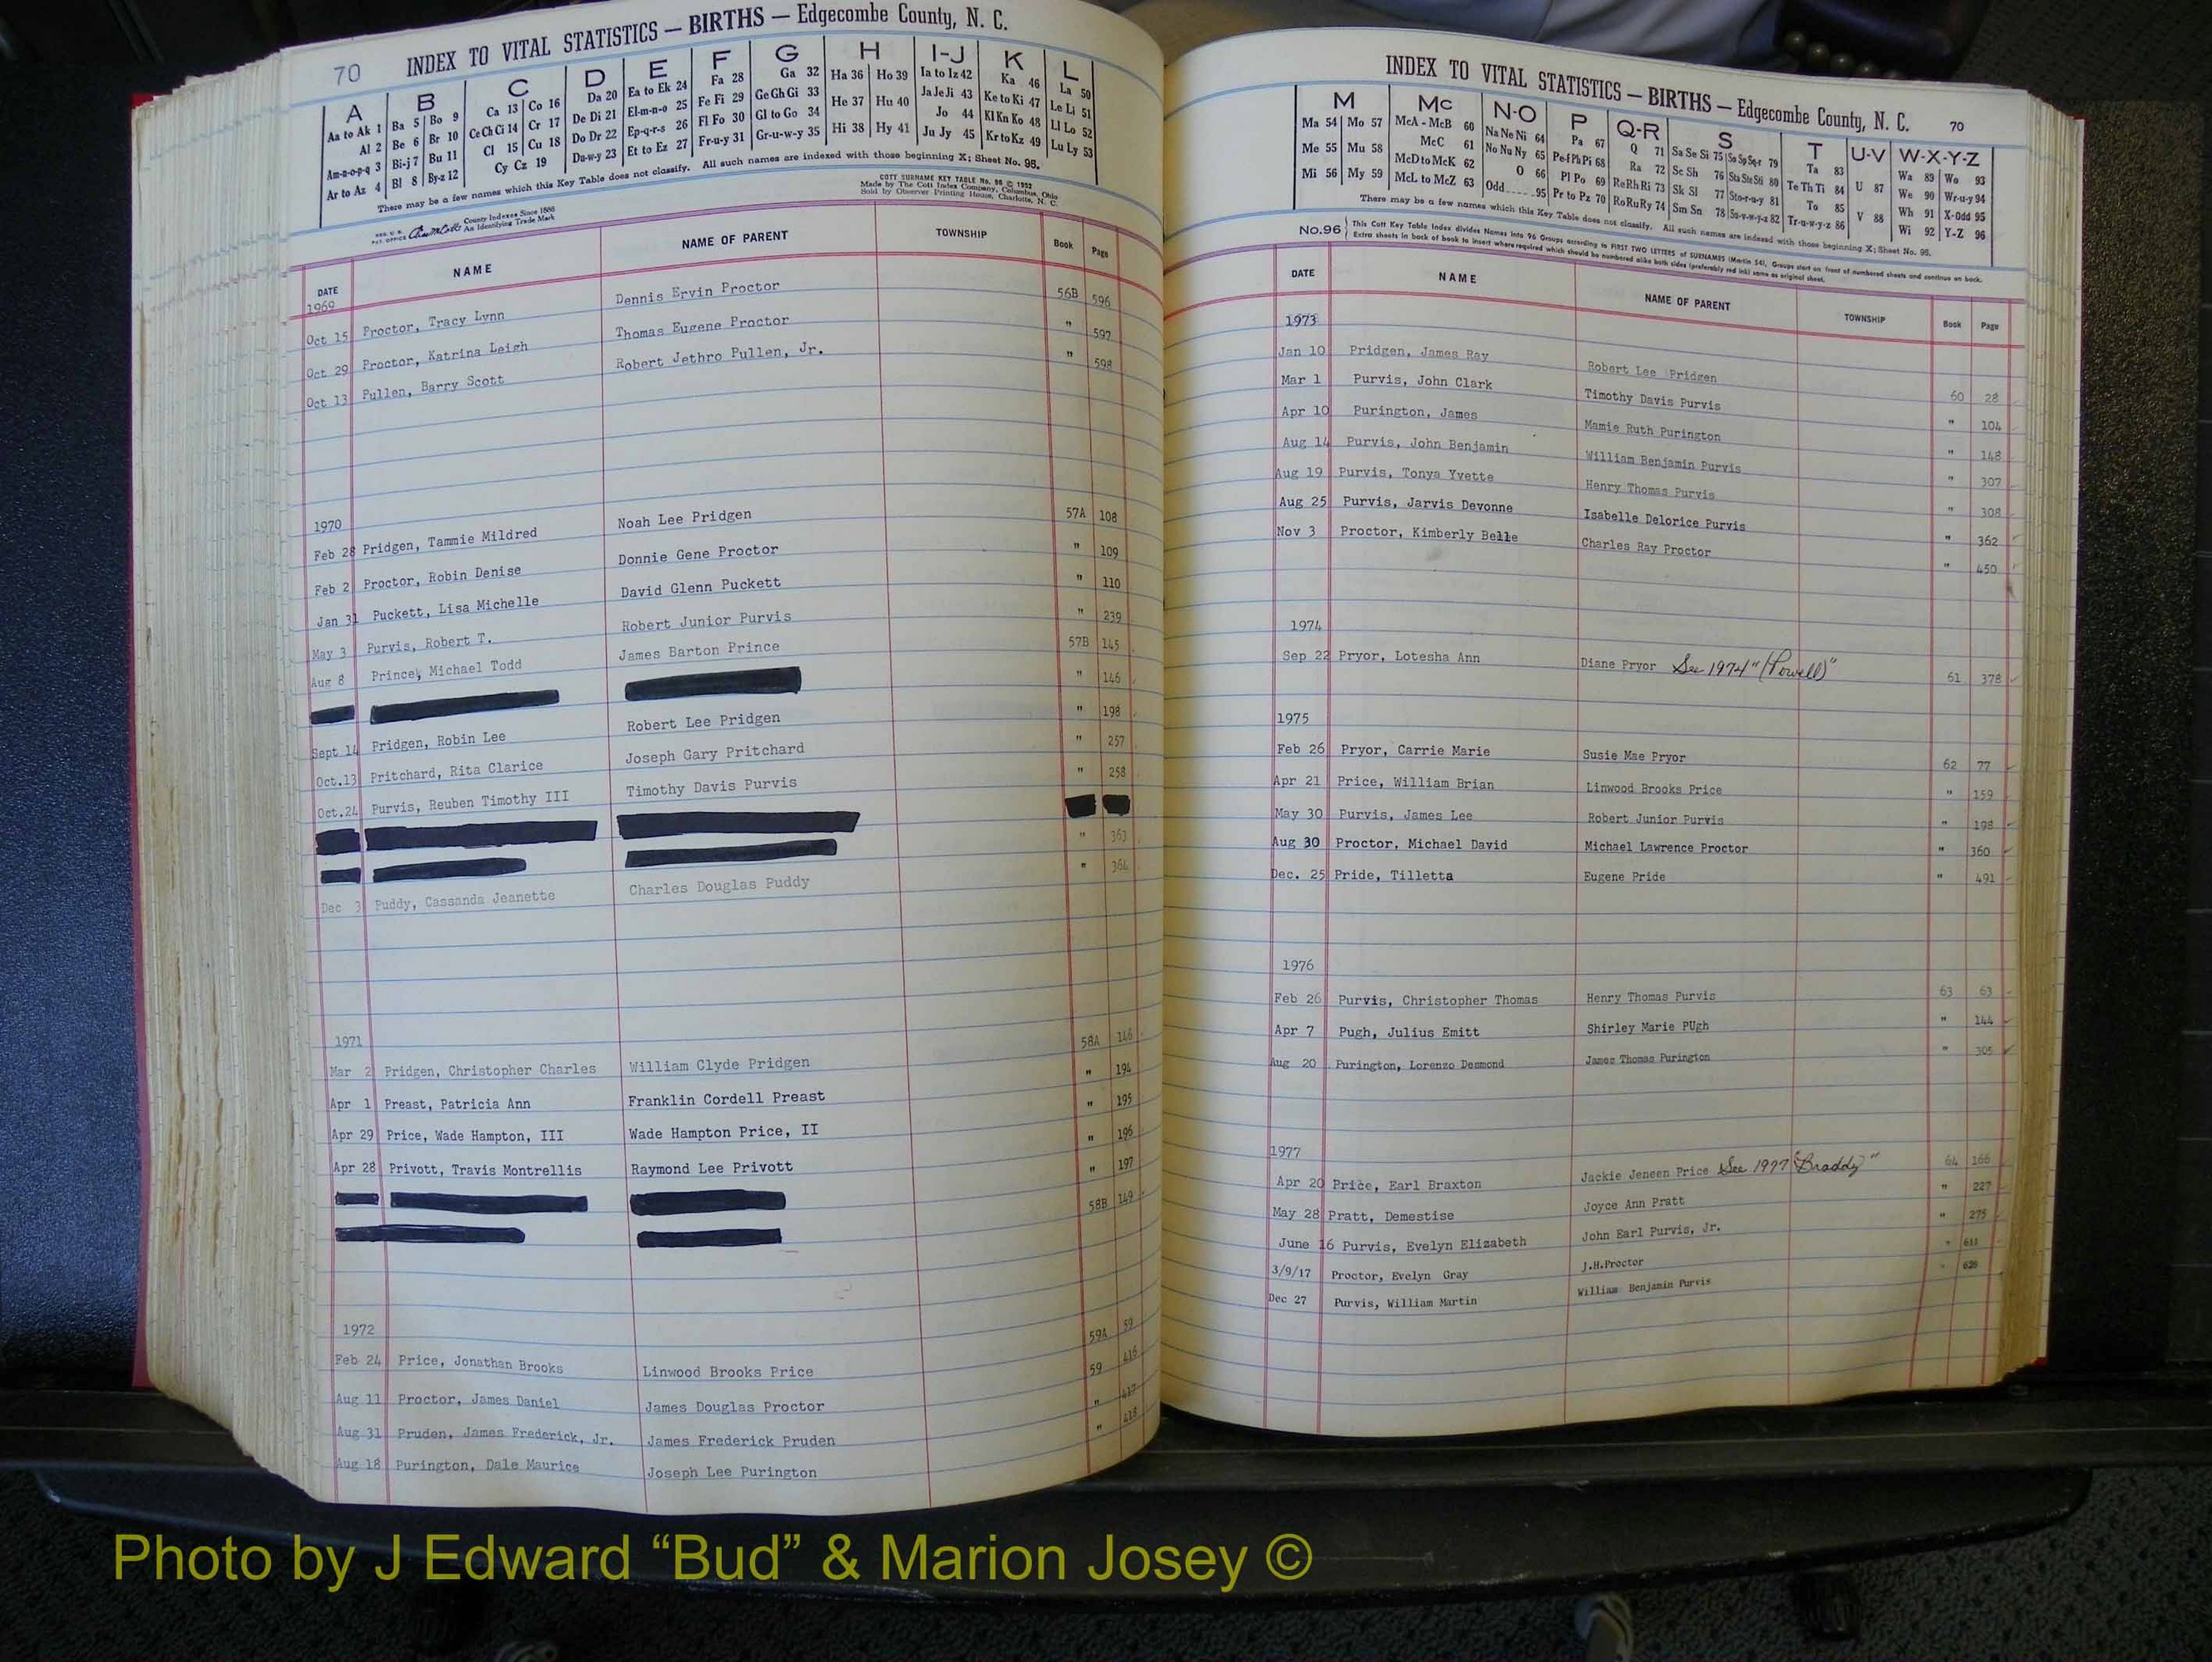 70 INDEX TO VITAL STATISTICS — BIRTHS — Edgecombe County, N. C.
A B C D E F G H I-J K L
Aa to Ak 1 Ba 5 Bo 9 Ca 13 Co 16 Da 20 Ea to Ek 24 Fa 28 Ga 32 Ha 36 Ho 39 Ia to Iz 42 Ka 46 La 50
Al 2 Be 6 Br 10 Ce Ch Ci 14 Cr 17 De Di 21 El-m-n-o 25 Fe Fi 29 Ge Gh Gi 33 He 37 Hu 40 Ja Je Ji 43 Ke to Ki 47 Le Li 51
Am-n-o-p-q 3 Bi-j 7 Bu 11 Cl 15 Cu 18 Do Dr 22 Ep-q-r-s 26 Fl Fo 30 Gl to Go 34 Hi 38 Hy 41 Jo 44 Kl Kn Ko 48 Ll Lo 52
Ar to Az 4 Bl 8 By-z 12 Cy Cz 19 Du-w-y 23 Et to Ez 27 Fr-u-y 31 Gr-u-w-y 35 Ju Jy 45 Kr to Kz 49 Lu Ly 53
There may be a few names which this Key Table does not classify. All such names are indexed with those beginning X; Sheet No. 95.
COTT SURNAME KEY TABLE No. 96 © 1952
Made by The Cott Index Company, Columbus, Ohio
Sold by Observer Printing House, Charlotte, N. C.
County Indexes Since 1888
An Identifying Trade Mark
DATE NAME NAME OF PARENT TOWNSHIP Book Page
1969
Oct 15 Proctor, Tracy Lynn Dennis Ervin Proctor 56B 596
Oct 29 Proctor, Katrina Leigh Thomas Eugene Proctor " 597
Oct 13 Pullen, Barry Scott Robert Jethro Pullen, Jr. " 598
1970
Feb 28 Pridgen, Tammie Mildred Noah Lee Pridgen 57A 108
Feb 2 Proctor, Robin Denise Donnie Gene Proctor " 109
Jan 31 Puckett, Lisa Michelle David Glenn Puckett " 110
May 3 Purvis, Robert T. Robert Junior Purvis " 239
Aug 8 Prince, Michael Todd James Barton Prince 57B 145
" 146
Sept 14 Pridgen, Robin Lee Robert Lee Pridgen " 198
Oct.13 Pritchard, Rita Clarice Joseph Gary Pritchard " 257
Oct.24 Purvis, Reuben Timothy III Timothy Davis Purvis " 258
" 363
" 364
Dec 3 Puddy, Cassanda Jeanette Charles Douglas Puddy
1971
Mar 2 Pridgen, Christopher Charles William Clyde Pridgen 58A 146
Apr 1 Preast, Patricia Ann Franklin Cordell Preast " 194
Apr 29 Price, Wade Hampton, III Wade Hampton Price, II " 195
Apr 28 Privott, Travis Montrellis Raymond Lee Privott " 196
" 197
58B 149
1972
Feb 24 Price, Jonathan Brooks Linwood Brooks Price 59A 59
Aug 11 Proctor, James Daniel James Douglas Proctor 59 416
Aug 31 Pruden, James Frederick, Jr. James Frederick Pruden " 417
Aug 18 Purington, Dale Maurice Joseph Lee Purington " 418
INDEX TO VITAL STATISTICS — BIRTHS — Edgecombe County, N. C. 70
M Mc N-O P Q-R S T U-V W-X-Y-Z
Ma 54 Mo 57 McA - McB 60 Na Ne Ni 64 Pa 67 Q 71 Sa Se Si 75 So Sp Sq-r 79 Ta 83 Wa 89 Wo 93
Me 55 Mu 58 McC 61 No Nu Ny 65 Pe-f Ph Pi 68 Ra 72 Sc Sh 76 Sta Ste Sti 80 Te Th Ti 84 U 87 We 90 Wr-u-y 94
Mi 56 My 59 McD to McK 62 O 66 Pl Po 69 Re Rh Ri 73 Sk Sl 77 Sto-r-u-y 81 To 85 Wh 91 X-Odd 95
McL to McZ 63 Odd 95 Pr to Pz 70 Ro Ru Ry 74 Sm Sn 78 Su-v-w-y-z 82 Tr-u-w-y-z 86 V 88 Wi 92 Y-Z 96
There may be a few names which this Key Table does not classify. All such names are indexed with those beginning X; Sheet No. 95.
No.96 This Cott Key Table Index divides Names into 96 Groups according to FIRST TWO LETTERS of SURNAMES (Martin 54), Groups start on front of numbered sheets and continue on back.
Extra sheets in back of book to insert where required which should be numbered alike both sides (preferably red ink) same as original sheet.
DATE NAME NAME OF PARENT TOWNSHIP Book Page
1973
Jan 10 Pridgen, James Ray Robert Lee Pridgen 60 28
Mar 1 Purvis, John Clark Timothy Davis Purvis " 104
Apr 10 Purington, James Mamie Ruth Purington " 148
Aug 14 Purvis, John Benjamin William Benjamin Purvis " 307
Aug 19 Purvis, Tonya Yvette Henry Thomas Purvis " 308
Aug 25 Purvis, Jarvis Devonne Isabelle Delorice Purvis " 362
Nov 3 Proctor, Kimberly Belle Charles Ray Proctor " 450
1974
Sep 22 Pryor, Lotesha Ann Diane Pryor See 1974 "(Powell)" 61 378
1975
Feb 26 Pryor, Carrie Marie Susie Mae Pryor 62 77
Apr 21 Price, William Brian Linwood Brooks Price " 159
May 30 Purvis, James Lee Robert Junior Purvis " 198
Aug 30 Proctor, Michael David Michael Lawrence Proctor " 360
Dec. 25 Pride, Tilletta Eugene Pride " 491
1976
Feb 26 Purvis, Christopher Thomas Henry Thomas Purvis 63 63
Apr 7 Pugh, Julius Emitt Shirley Marie PUgh " 144
Aug 20 Purington, Lorenzo Desmond James Thomas Purington " 305
1977
Apr 20 Price, Earl Braxton Jackie Jeneen Price See 1977 "Braddy" 64 166
May 28 Pratt, Demestise Joyce Ann Pratt " 227
June 16 Purvis, Evelyn Elizabeth John Earl Purvis, Jr. " 275
3/9/17 Proctor, Evelyn Gray J.H.Proctor " 611
Dec 27 Purvis, William Martin William Benjamin Purvis " 626
Photo by J Edward “Bud” & Marion Josey ©